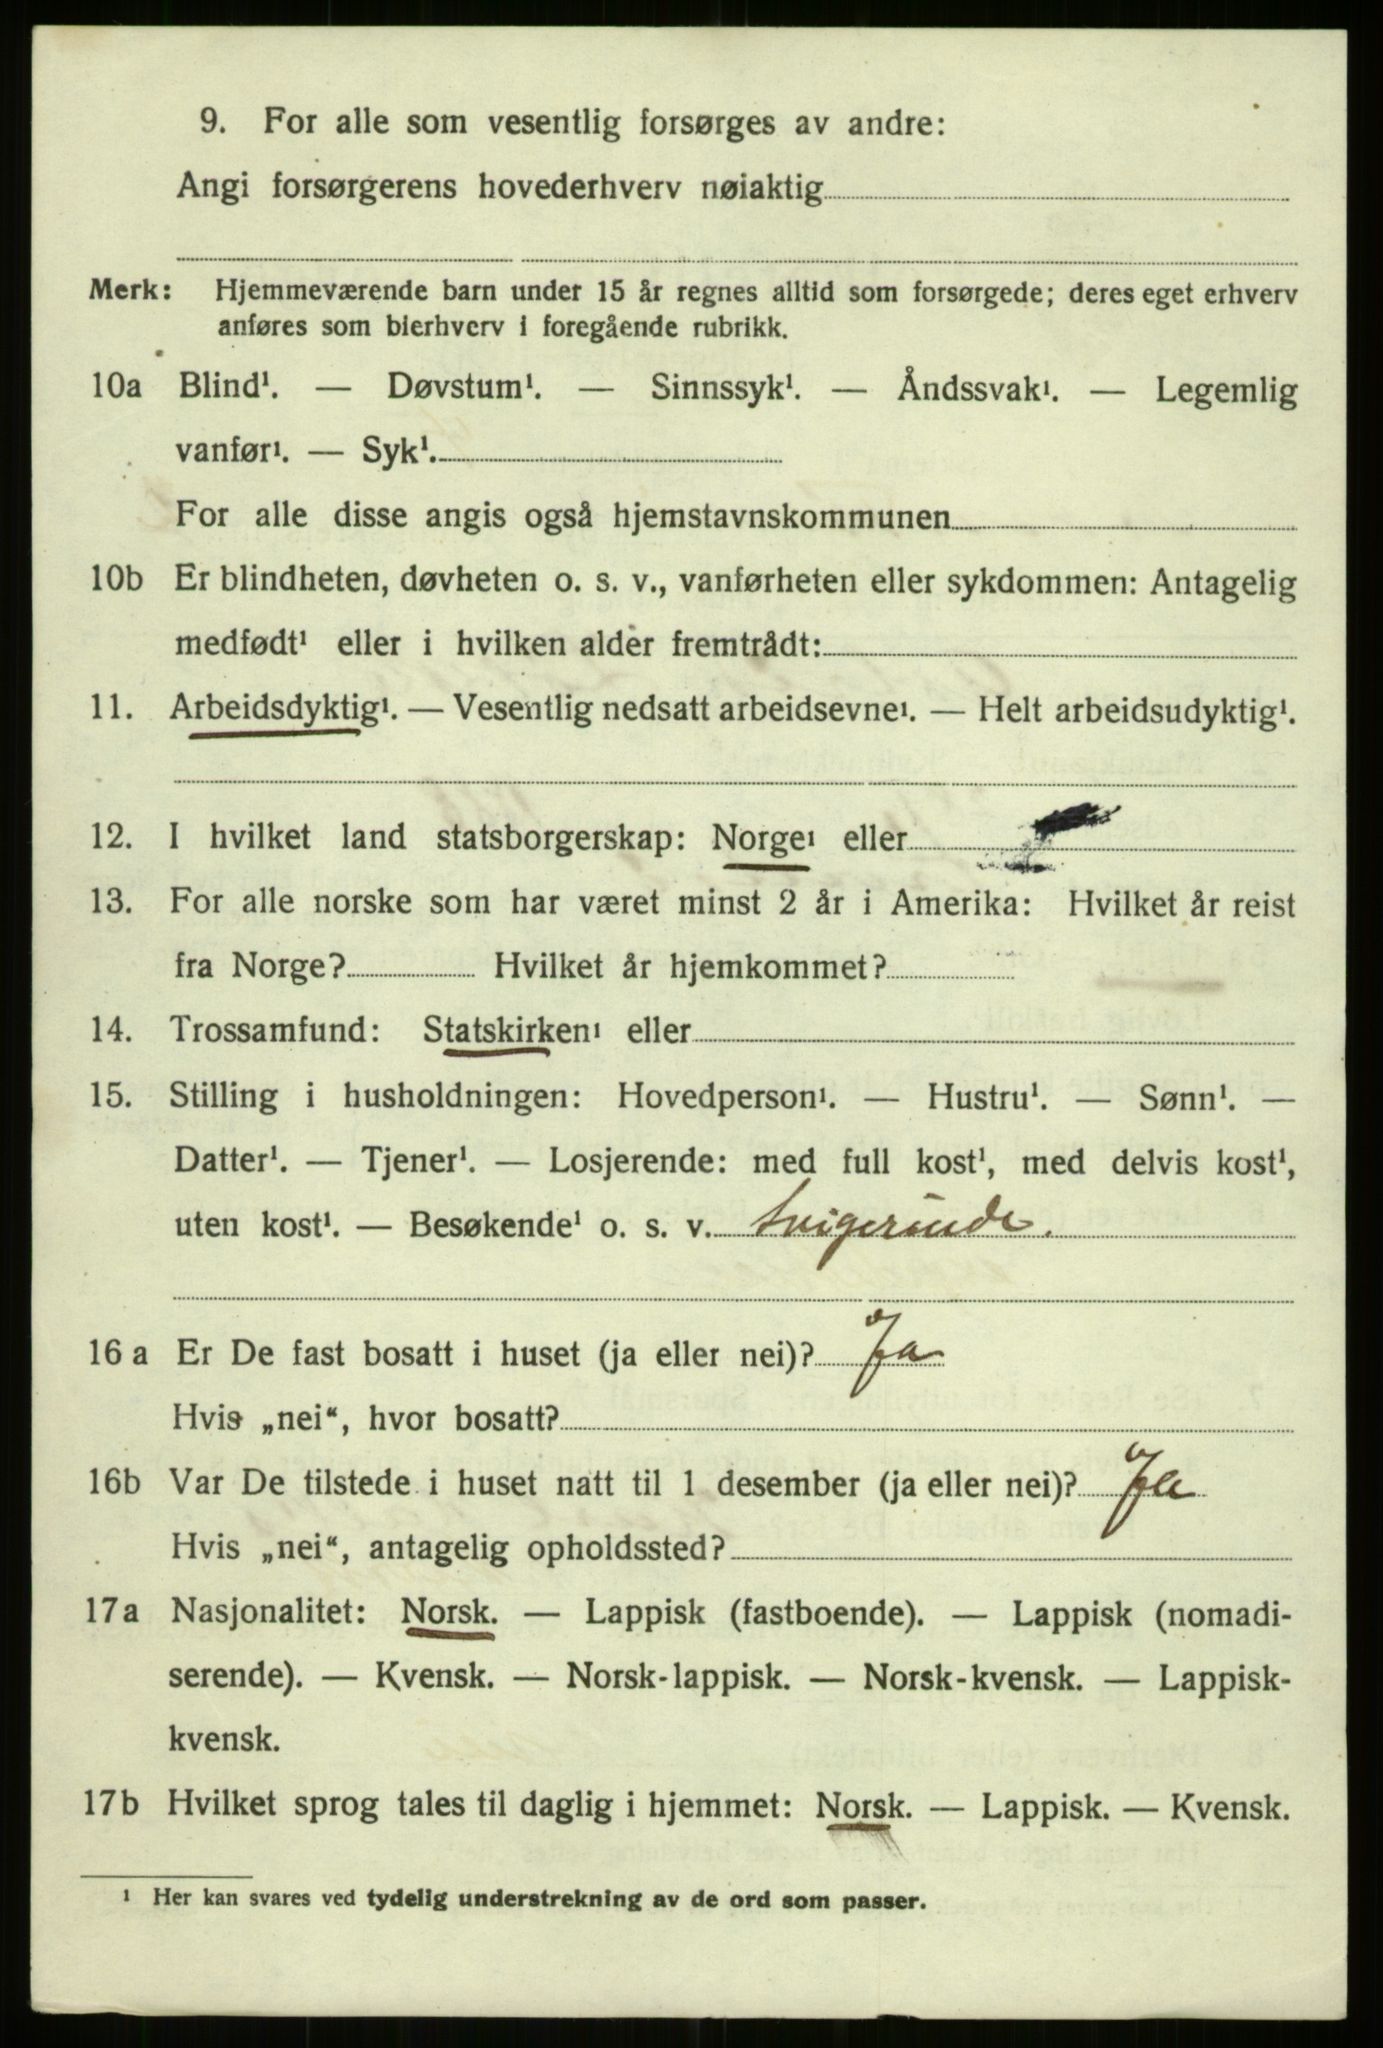 9. For alle som vesentlig forsørges av andre:
Angi forsørgerens hovederhverv nøiaktig
Merk: Hjemmeværende barn under 15 år regnes alltid som forsørgede; deres eget erhverv
anføres som bierhverv i foregående rubrikk.
10a Blind¹. — Døvstum¹. — Sinnssyk¹. — Åndssvak¹. — Legemlig
vanfør¹. — Syk¹.
For alle disse angis også hjemstavnskommunen
10b Er blindheten, døvheten o. s. v., vanførheten eller sykdommen: Antagelig
medfødt¹ eller i hvilken alder fremtrådt:
11. Arbeidsdyktig¹. — Vesentlig nedsatt arbeidsevne¹. — Helt arbeidsudyktig¹.
12. I hvilket land statsborgerskap: Norge¹ eller
13. For alle norske som har været minst 2 år i Amerika: Hvilket år reist
fra Norge? Hvilket år hjemkommet?
14. Trossamfund: Statskirken¹ eller
15. Stilling i husholdningen: Hovedperson¹. — Hustru¹. — Sønn¹. —
Datter¹. — Tjener¹. — Losjerende: med full kost¹, med delvis kost¹,
uten kost¹. — Besøkende¹ o. s. v.
16 a Er De fast bosatt i huset (ja eller nei)? Ja
Hvis „nei“, hvor bosatt?
16b Var De tilstede i huset natt til 1 desember (ja eller nei)? Ja
Hvis „nei“, antagelig opholdssted?
17a Nasjonalitet: Norsk. — Lappisk (fastboende). — Lappisk (nomadi-
serende). — Kvensk. — Norsk-lappisk. — Norsk-kvensk. — Lappisk-
kvensk.
17b Hvilket sprog tales til daglig i hjemmet: Norsk. — Lappisk. — Kvensk.
¹ Her kan svares ved tydelig understrekning av de ord som passer.